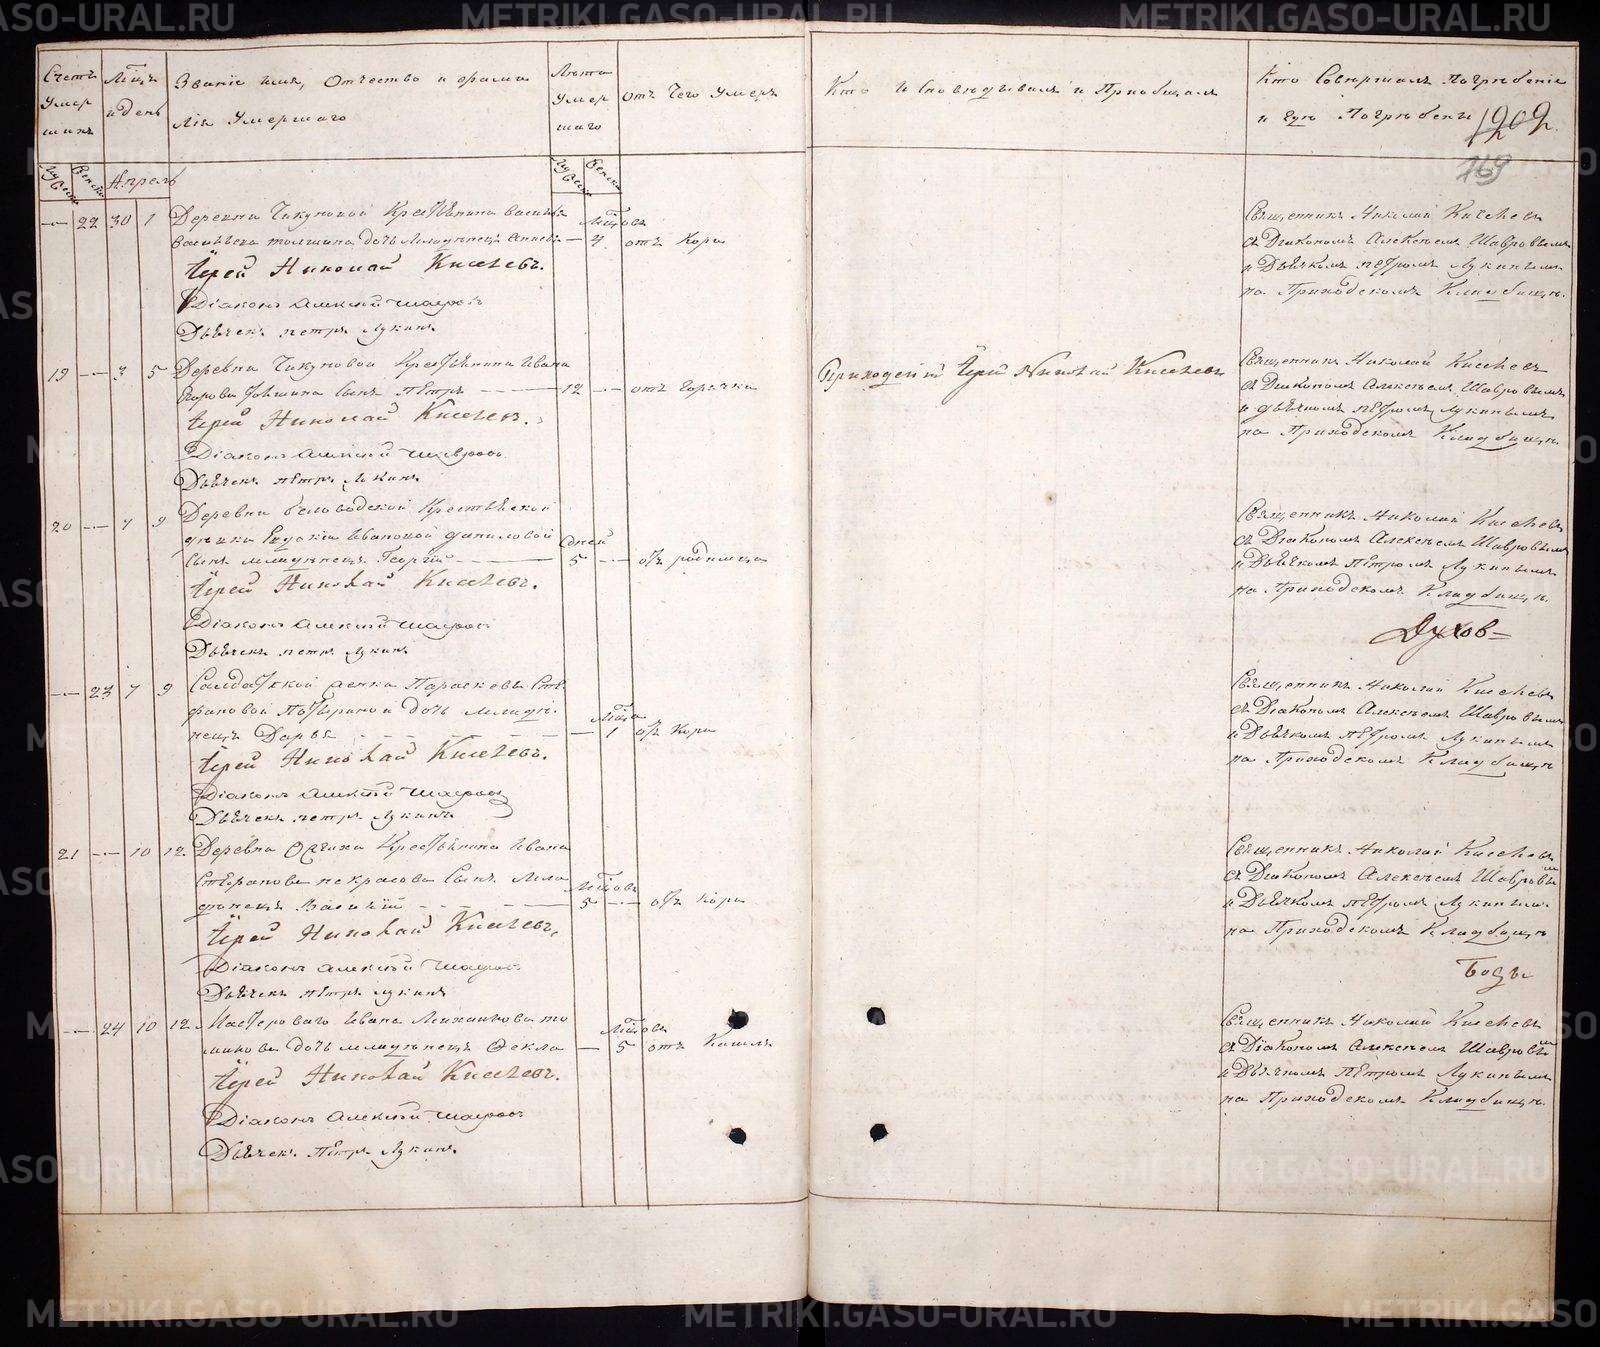 Счетъ умершихъ
Мѣцъ и день
Званіе имя, Отчество и фамилія Умершаго
Лѣта Умершаго
отъ Чего Умеръ
Кто Исповѣдывалъ и Пріобщалъ
Кто Совершалъ Погрѣбеніе и гдѣ Погрѣбенъ
1202
169
Мужескъ Женскъ Апрель Мужескъ Женскъ
22 30 1 Деревни Чикуновой Крестьянина василья
васильева дочь младенецъ Мѣцовъ 4 отъ Кори
Іерей Николай Киселевъ.
Діаконъ алексѣй шавровъ
Дьячекъ петръ Лукинъ
Священникъ Николай Киселевъ
съ Діакономъ Алексѣемъ Шавровымъ
и Дьячкомъ петромъ Лукинымъ
на Приходскомъ Кладбищѣ.
19 3 5 Деревни Чикуновой Крестьянина Ивана
Егорова сынъ петръ 12 отъ горячки
Іерей Николай Киселевъ.
Діаконъ алексѣй шавровъ
Дьячекъ петръ Лукинъ
Приходский Іерей Николай Киселевъ
Священникъ Николай Киселевъ
съ Діакономъ Алексѣемъ Шавровымъ
и дьячкомъ петромъ Лукинымъ
на Приходскомъ Кладбищѣ
20 7 9 Деревни беловодской Крестьянской
дѣвки Ивановой даниловой
сынъ младенецъ Георгій дней 5 отъ родимца
Іерей Николай Киселевъ.
Діаконъ алексѣй шавровъ
Дьячекъ петръ Лукинъ
Священникъ Николай Киселевъ
съ Діакономъ Алексѣемъ Шавровымъ
и Дьячкомъ Петромъ Лукинымъ
на Приходскомъ Кладбищѣ.
Духов=
23 7 9 Салдатской женки Параскевы Сте
фановой дочь младе
нецъ Дарья Мѣца 1 отъ Кори
Іерей Николай Киселевъ.
Діаконъ алексѣй шавровъ
Дьячекъ петръ Лукинъ
Священникъ Николай Киселевъ
съ Діакономъ Алексѣемъ Шавровымъ
и Дьячкомъ петромъ Лукинымъ
на Приходскомъ Кладбищѣ
21 10 12 Деревни Крестьянина Ивана
Стефанова некрасова Сынъ Мла
денецъ Василій Мѣцовъ 5 отъ Кори
Іерей Николай Киселевъ,
Діаконъ алексѣй шавровъ
Дьячекъ петръ лукинъ
Священникъ Николай Киселевъ
съ Діакономъ Алексѣемъ Шавровымъ
и Дьячкомъ петромъ Лукинымъ
на Приходскомъ Кладбищѣ
24 10 12 Мастероваго Ивана Михаилова то
милова дочь младенецъ Фекла Мѣцовъ 5 отъ Кашля
Іерей Николай Киселевъ.
Діаконъ алексѣй шавровъ
Дьячекъ Петръ Лукинъ
Священникъ Николай Киселевъ
съ Діакономъ Алексѣемъ Шавровымъ
и Дьячкомъ Петромъ Лукинымъ
на Приходскомъ Кладбищѣ.
METRIKI.GASO-URAL.RU